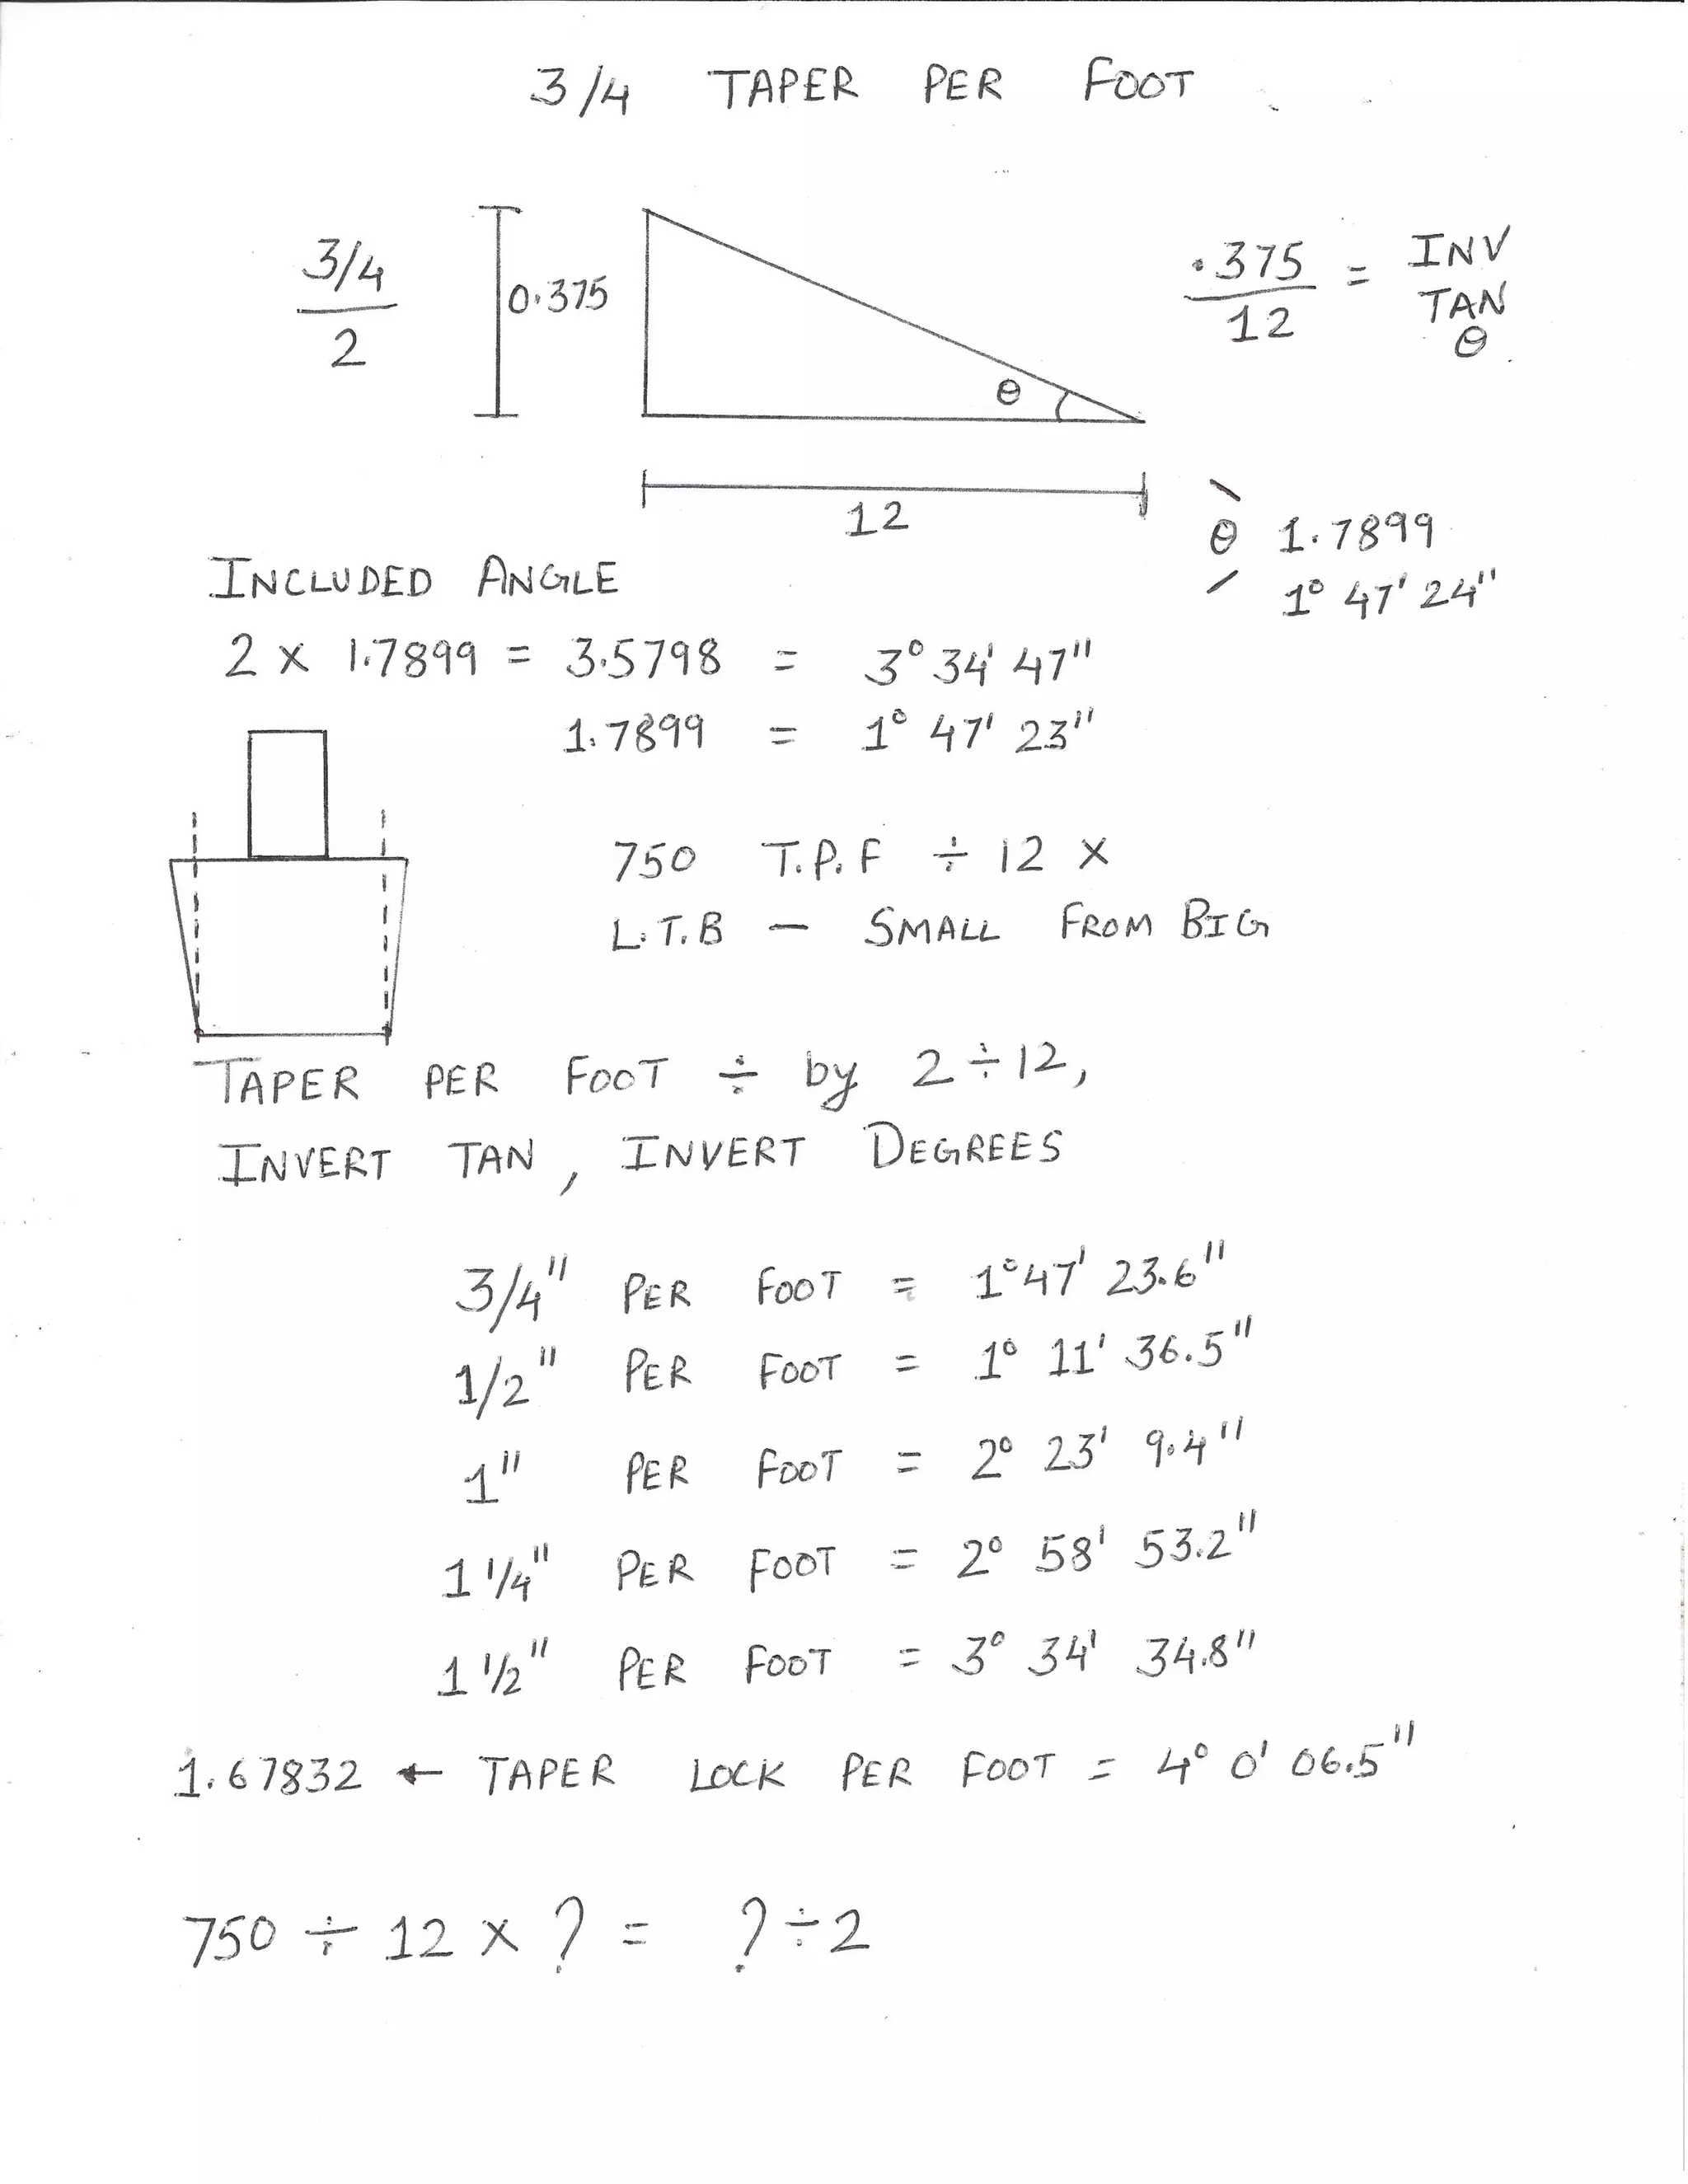 3/4 TAPER PER FOOT
3/4
2
0.375
.375
12
= INV
TAN
θ
θ
12
θ 1.7899
1° 47' 24"
INCLUDED ANGLE
2 x 1.7899 = 3.5798 = 3° 34' 47"
1.7899 = 1° 47' 23"
750 T.P.F ÷ 12 x
L.T.B - SMALL FROM BIG
TAPER PER FOOT ÷ by 2 ÷ 12,
INVERT TAN, INVERT DEGREES
3/4" PER FOOT = 1° 47' 23.6"
1/2" PER FOOT = 1° 11' 36.5"
1" PER FOOT = 2° 23' 9.4"
1 1/4" PER FOOT = 2° 58' 53.2"
1 1/2" PER FOOT = 3° 34' 34.8"
1.67832 ← TAPER LOCK PER FOOT = 4° 0' 06.5"
750 ÷ 12 x ? = ? ÷ 2